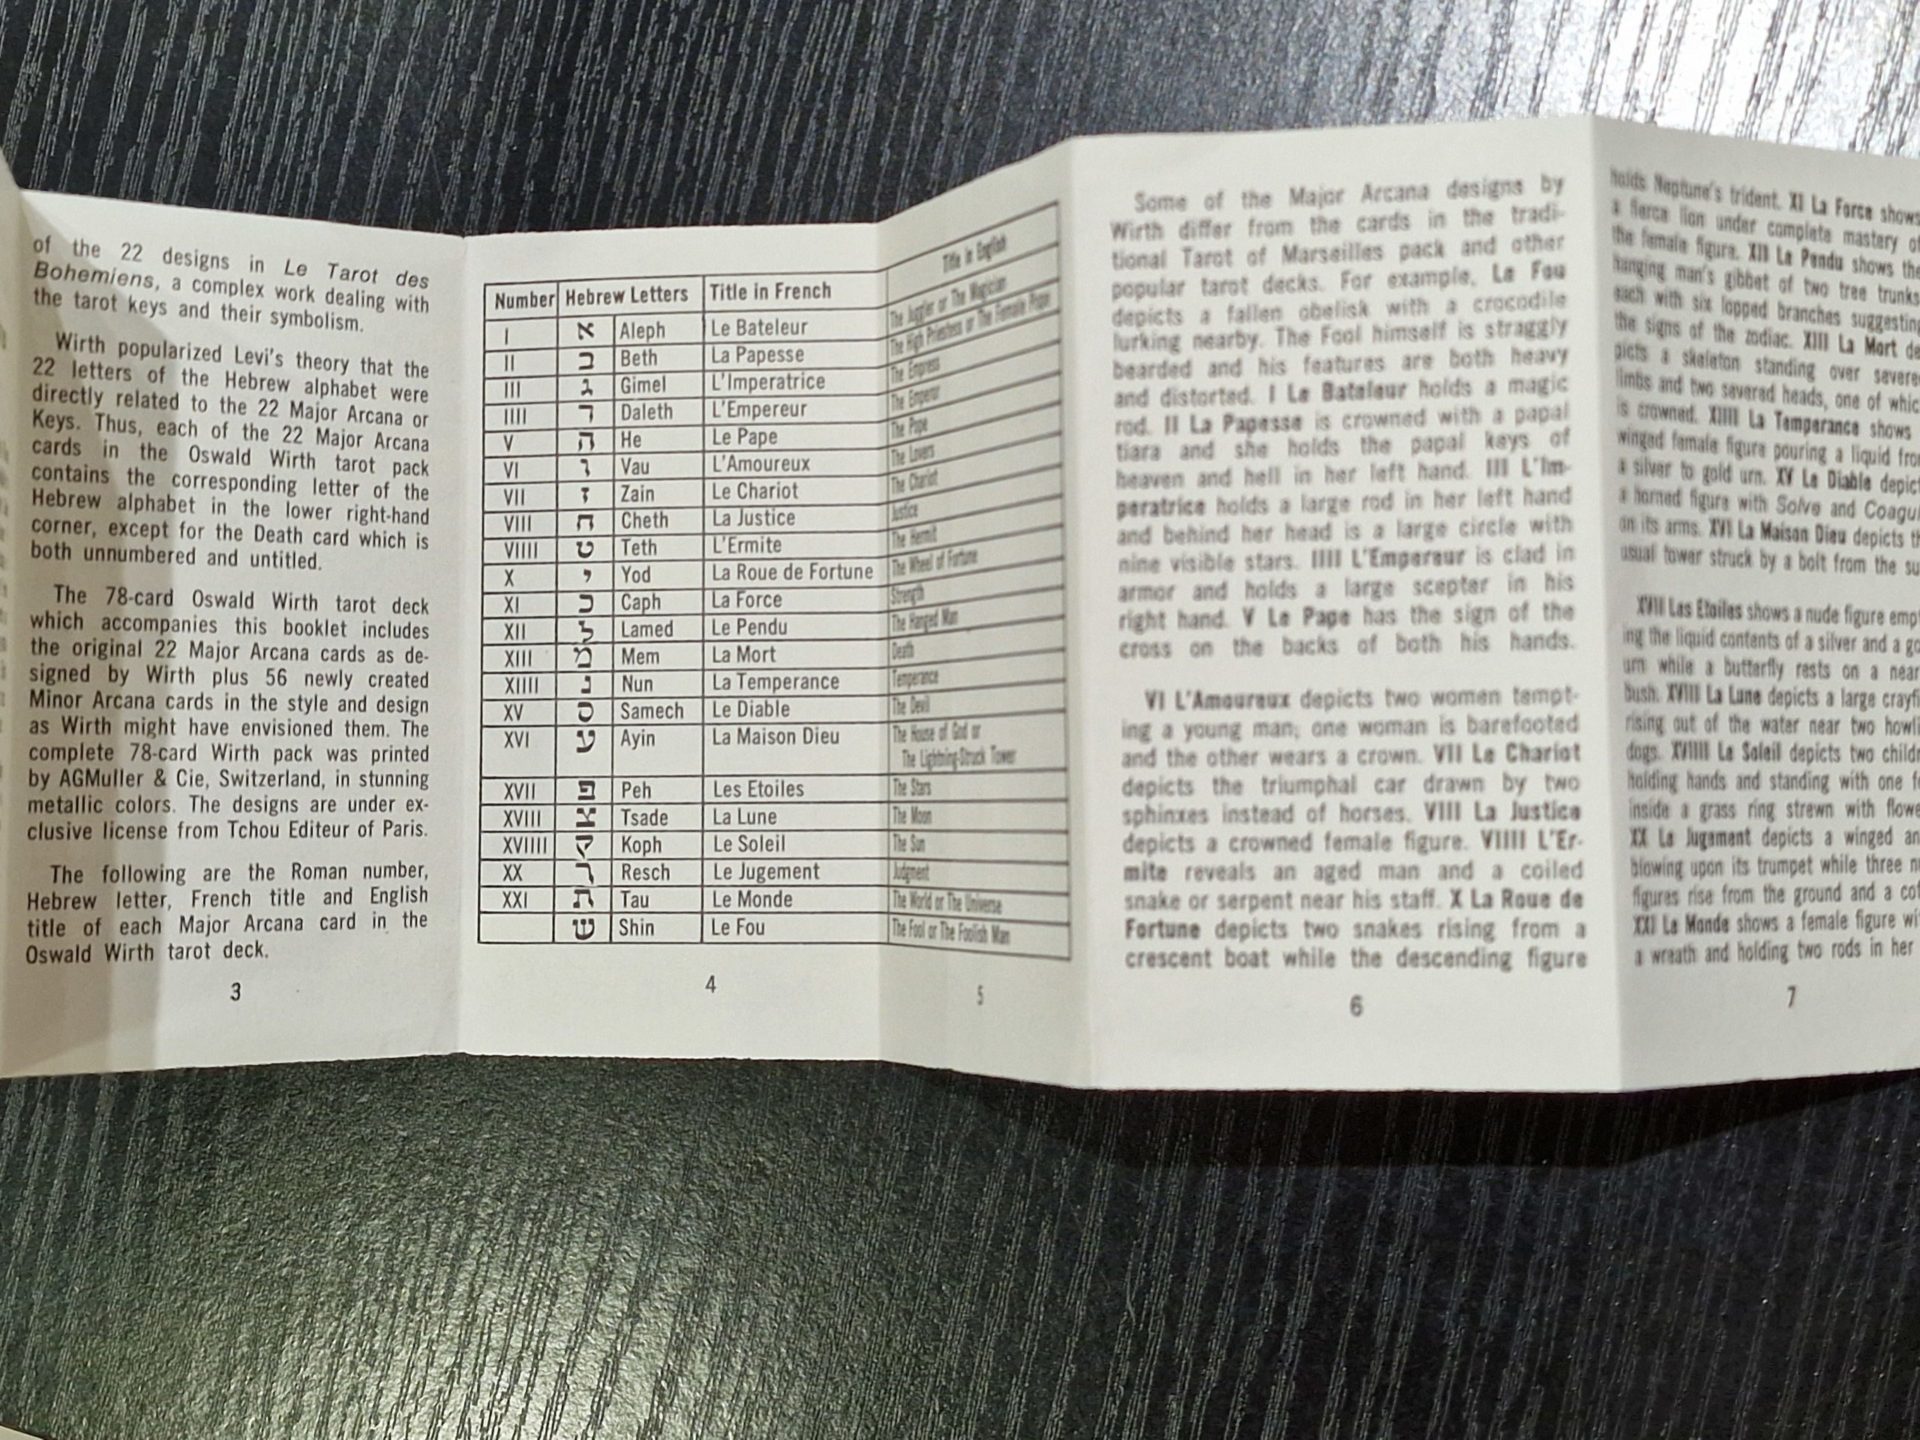 of the 22 designs in Le Tarot des
Bohemiens, a complex work dealing with
the tarot keys and their symbolism.
Wirth popularized Levi's theory that the
22 letters of the Hebrew alphabet were
directly related to the 22 Major Arcana or
Keys. Thus, each of the 22 Major Arcana
cards in the Oswald Wirth tarot pack
contains the corresponding letter of the
Hebrew alphabet in the lower right-hand
corner, except for the Death card which is
both unnumbered and untitled.
The 78-card Oswald Wirth tarot deck
which accompanies this booklet includes
the original 22 Major Arcana cards as de-
signed by Wirth plus 56 newly created
Minor Arcana cards in the style and design
as Wirth might have envisioned them. The
complete 78-card Wirth pack was printed
by AGMuller & Cie, Switzerland, in stunning
metallic colors. The designs are under ex-
clusive license from Tchou Editeur of Paris.
The following are the Roman number,
Hebrew letter, French title and English
title of each Major Arcana card in the
Oswald Wirth tarot deck.
3
Number Hebrew Letters Title in French Title in English
I א Aleph Le Bateleur The Juggler or The Magician
II ב Beth La Papesse The High Priestess or The Female Pope
III ג Gimel L'Imperatrice The Empress
IIII ד Daleth L'Empereur The Emperor
V ה He Le Pape The Pope
VI ו Vau L'Amoureux The Lovers
VII ז Zain Le Chariot The Chariot
VIII ח Cheth La Justice Justice
VIIII ט Teth L'Ermite The Hermit
X י Yod La Roue de Fortune The Wheel of Fortune
XI כ Caph La Force Strength
XII ל Lamed Le Pendu The Hanged Man
XIII מ Mem La Mort Death
XIIII נ Nun La Temperance Temperance
XV ס Samech Le Diable The Devil
XVI ע Ayin La Maison Dieu The House of God or
The Lightning-Struck Tower
XVII פ Peh Les Etoiles The Stars
XVIII צ Tsade La Lune The Moon
XVIIII ק Koph Le Soleil The Sun
XX ר Resch Le Jugement Judgment
XXI ת Tau Le Monde The World or The Universe
ש Shin Le Fou The Fool or The Foolish Man
4
5
Some of the Major Arcana designs by
Wirth differ from the cards in the tradi-
tional Tarot of Marseilles pack and other
popular tarot decks. For example, Le Fou
depicts a fallen obelisk with a crocodile
lurking nearby. The Fool himself is straggly
bearded and his features are both heavy
and distorted. I Le Bateleur holds a magic
rod. II La Papesse is crowned with a papal
tiara and she holds the papal keys of
heaven and hell in her left hand. III L'Im-
peratrice holds a large rod in her left hand
and behind her head is a large circle with
nine visible stars. IIII L'Empereur is clad in
armor and holds a large scepter in his
right hand. V Le Pape has the sign of the
cross on the backs of both his hands.
VI L'Amoureux depicts two women tempt-
ing a young man; one woman is barefooted
and the other wears a crown. VII Le Chariot
depicts the triumphal car drawn by two
sphinxes instead of horses. VIII La Justice
depicts a crowned female figure. VIIII L'Er-
mite reveals an aged man and a coiled
snake or serpent near his staff. X La Roue de
Fortune depicts two snakes rising from a
crescent boat while the descending figure
6
holds Neptune's trident. XI La Force shows
a fierce lion under complete mastery of
the female figure. XII Le Pendu shows the
hanging man's gibbet of two tree trunks
each with six lopped branches suggesting
the signs of the zodiac. XIII La Mort de-
picts a skeleton standing over severed
limbs and two severed heads, one of which
is crowned. XIIII La Temperance shows
winged female figure pouring a liquid from
a silver to gold urn. XV Le Diable depict
a horned figure with Solve and Coagu
on its arms. XVI La Maison Dieu depicts th
usual tower struck by a bolt from the su
XVII Les Etoiles shows a nude figure empt
ing the liquid contents of a silver and a go
urn while a butterfly rests on a near
bush. XVIII La Lune depicts a large crayfi
rising out of the water near two howli
dogs. XVIIII Le Soleil depicts two childr
holding hands and standing with one f
inside a grass ring strewn with flowe
XX Le Jugement depicts a winged an
blowing upon its trumpet while three n
figures rise from the ground and a cof
XXI Le Monde shows a female figure wi
a wreath and holding two rods in her
7